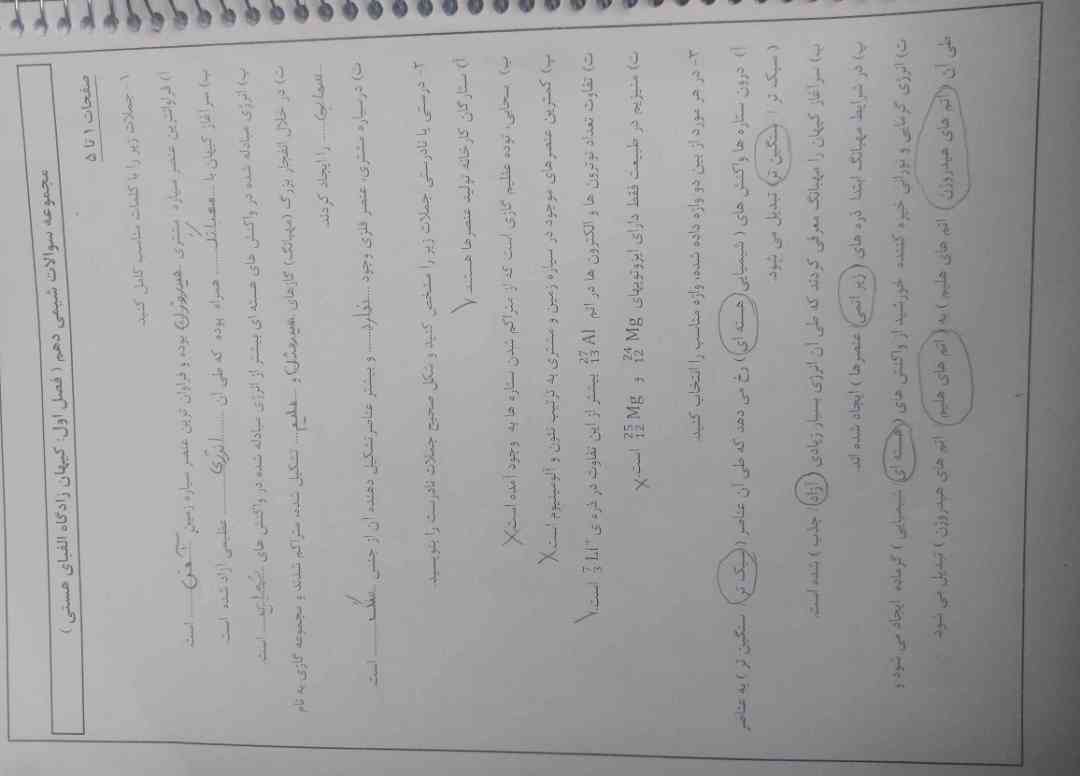 مجموعه سوالات شیمی دهم ( فصل اول: کیهان زادگاه الفبای هستی )
صفحات ۱ تا ۵
۱- جملات زیر را با کلمات مناسب کامل کنید.
آ) فراوانترین عنصر سیاره مشتری هیدروژن بوده و فراوان ترین عنصر سیاره زمین آهن است.
ب) سرآغاز کیهان با مهبانگ همراه بوده که طی آن انرژی عظیمی آزاد شده است.
پ) انرژی مبادله شده در واکنش های هسته ای بیشتر از انرژی مبادله شده در واکنش های شیمیایی است
ت) در خلال انفجار بزرگ (مهبانگ) گازهای هیدروژن و هلیم تشکیل شده، متراکم شدند و مجموعه گازی به نام
سحابی را ایجاد کردند.
ث) در سیاره مشتری، عنصر فلزی وجود ندارد و بیشتر عناصر تشکیل دهنده آن از جنس است.
۲- درستی یا نادرستی جملات زیر را مشخص کنید و شکل صحیح جملات نادرست را بنویسید.
آ) ستارگان کارخانه تولید عنصرها هستند. ✓
ب) سحابی، توده عظیم گازی است که از متراکم شدن ستاره ها به وجود آمده است. ×
پ) کمترین عنصرهای موجود در سیاره زمین و مشتری به ترتیب نئون و آلومینیوم است. ×
ت) تفاوت تعداد نوترون ها و الکترون ها در اتم ²⁷₁₃Al بیشتر از این تفاوت در ذره ی ⁷₃Li⁺ است. ✓
ث) منیزیم در طبیعت فقط دارای ایزوتوپهای ²⁴₁₂Mg و ²⁵₁₂Mg است. ×
۳- در هر مورد از بین دو واژه داده شده، واژه مناسب را انتخاب کنید.
آ) درون ستاره ها واکنش های ( شیمیایی / هسته ای ) رخ می دهد که طی آن عناصر ( سبک تر / سنگین تر ) به عناصر
( سبک تر / سنگین تر ) تبدیل می شود.
ب) سرآغاز کیهان را مهبانگ معرفی کردند که طی آن انرژی بسیار زیادی ( آزاد / جذب ) شده است.
پ) در شرایط مهبانگ ابتدا ذره های ( زیر اتمی / عنصرها ) ایجاد شده اند.
ت) انرژی گرمایی و نورانی خیره کننده خورشید از واکنش های ( هسته ای / شیمیایی ) گرماده ایجاد می شود و
طی آن ( اتم های هیدروژن / اتم های هلیم ) به ( اتم های هلیم / اتم های هیدروژن ) تبدیل می شود.